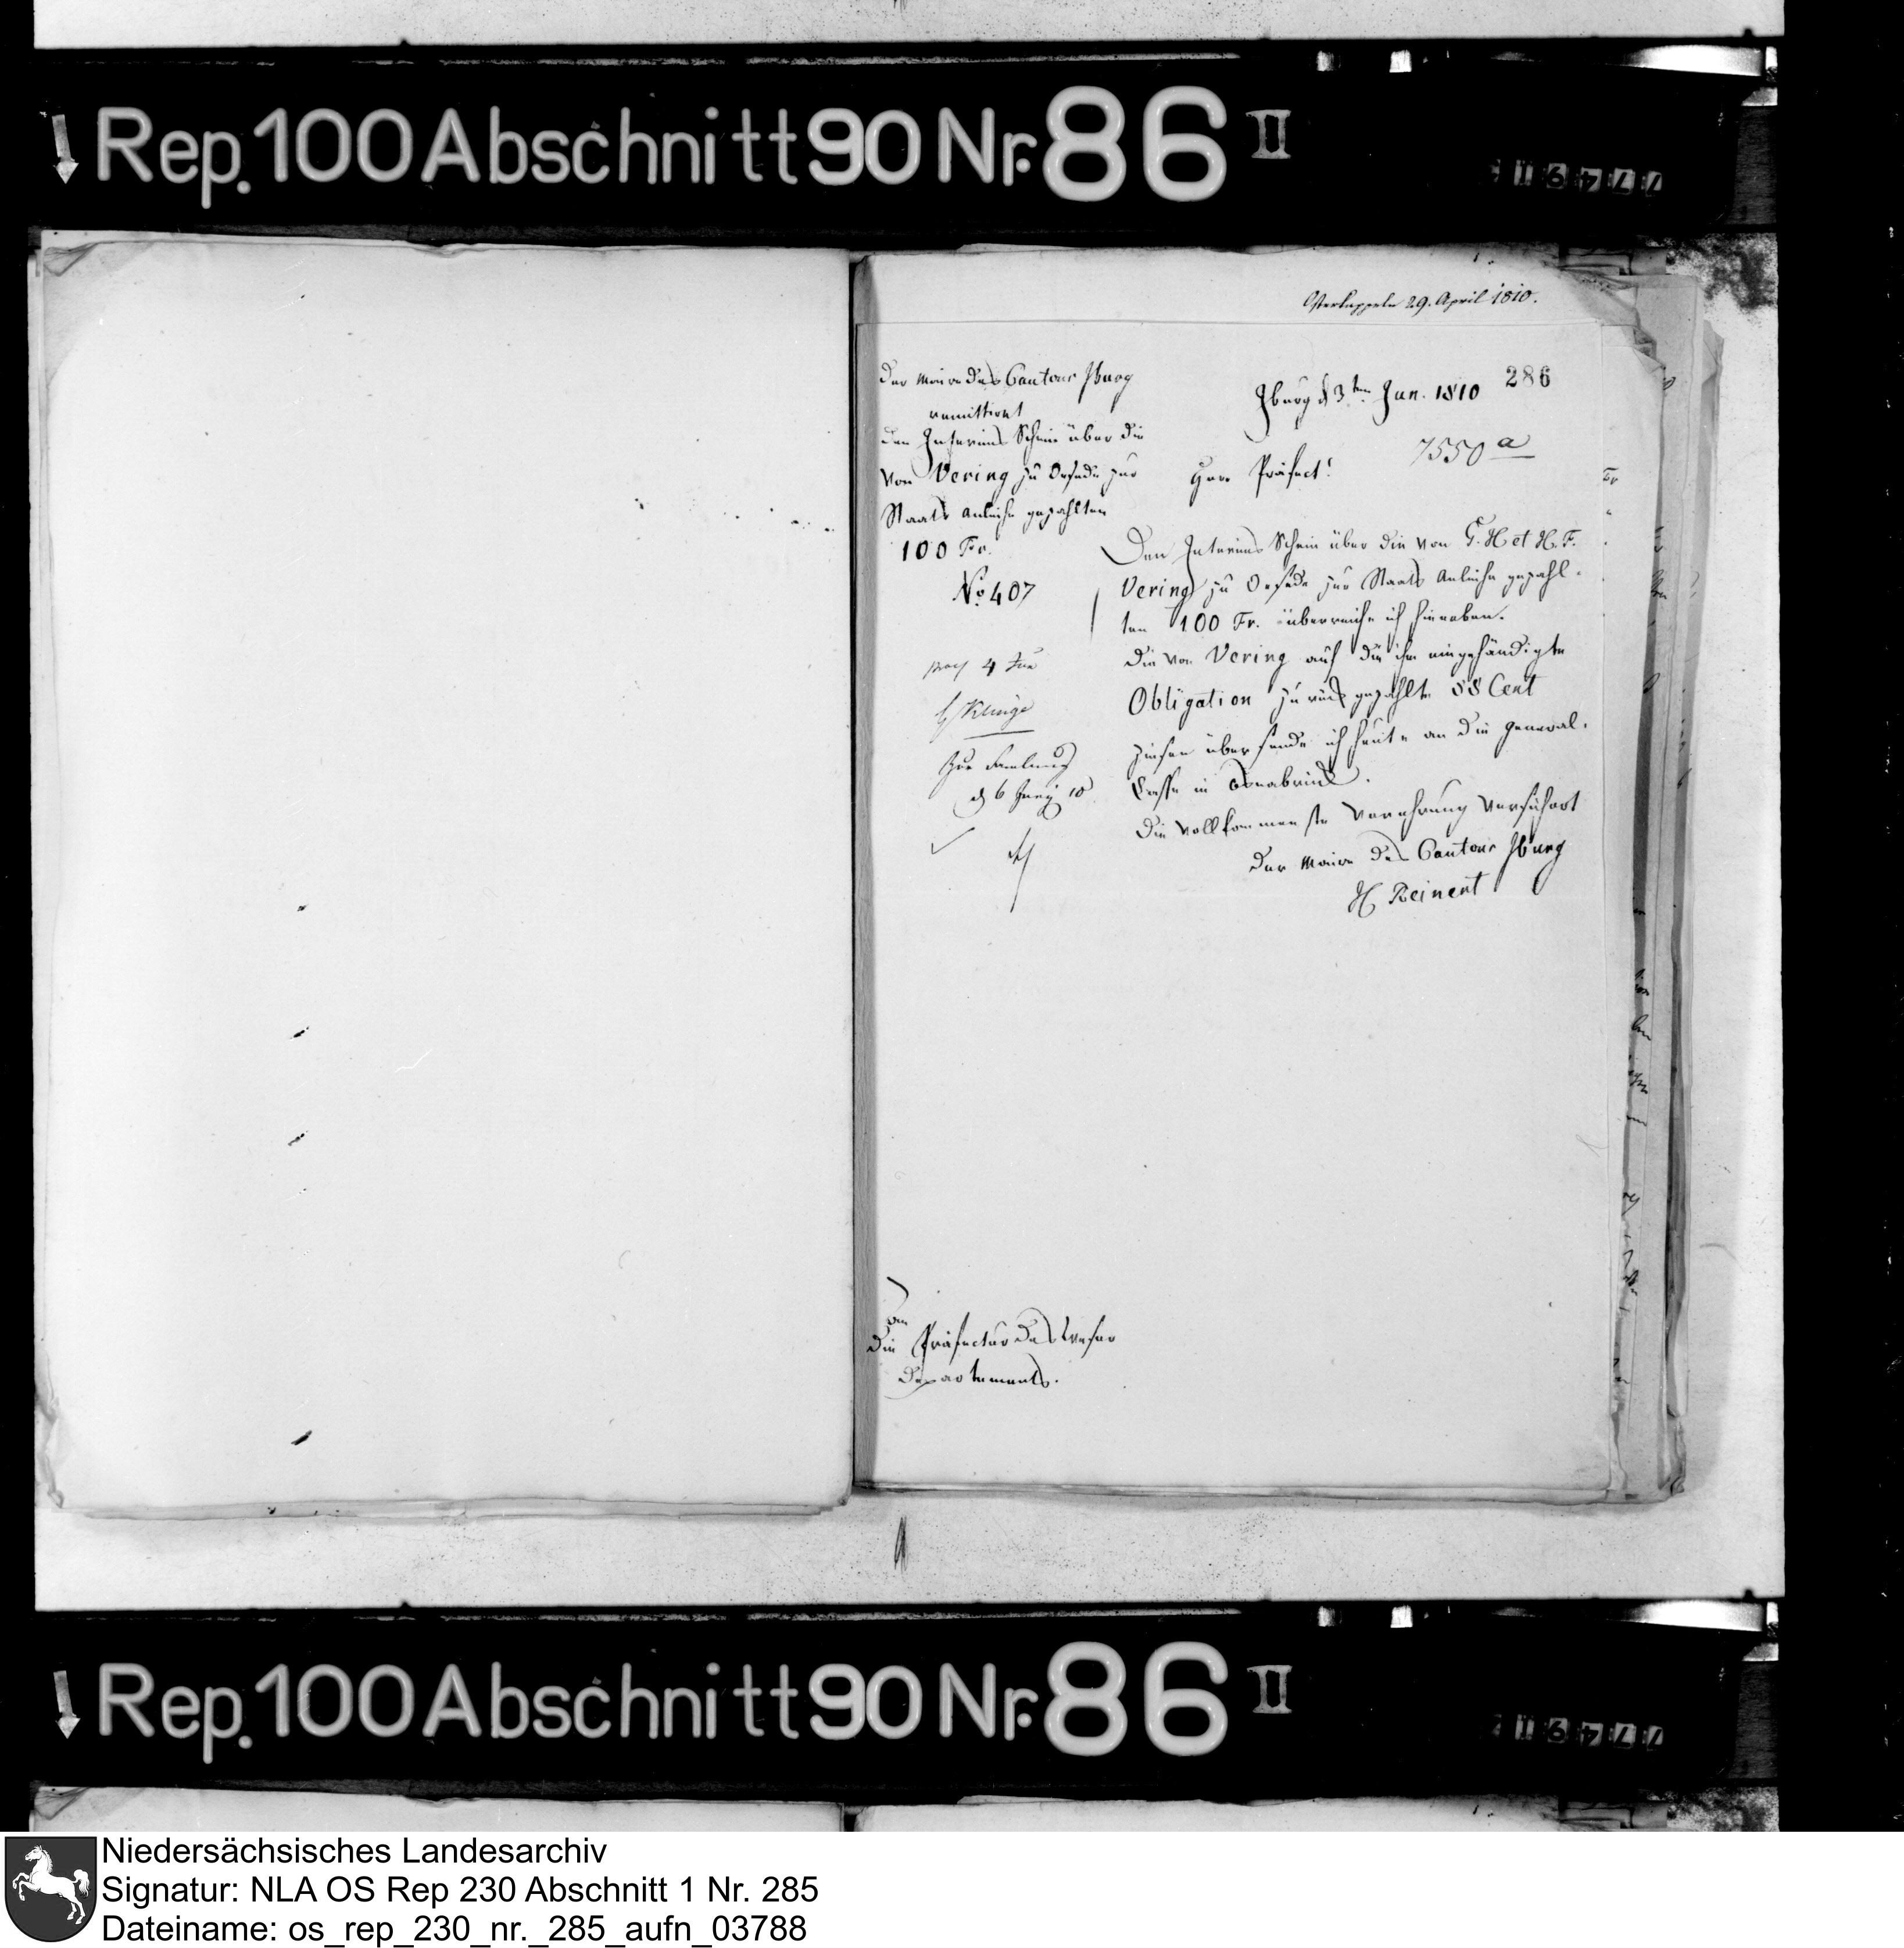 Rep. 100 Abschnitt 90 Nr. 86 II
Osterkappeln 29. April 1810.
286
Der Maire des Cantons Iburg
remittirt
den Interims Schein über die
von Vering zu Oesede zur
Staats Anleihe gezahlten
100 Fr.
No 407
Iburg d 3ten Jun. 1810
7550 a
Herr Präfect!
Den Interims Schein über die von G. H et H. F.
Vering zu Oesede zur Staats Anleihe gezahl-
ten 100 Fr. überreiche ich hieneben.
Die von Vering auf die ihm eingehändigte
Obligation zurückgezahlte 88 Cent
Zinsen übersende ich heute an die General-
Casse in Osnabrück.
Die vollkommenste Verehrung versichert
Der Maire des Cantons Iburg
H Reinert
4 Jun
Klinge
Zur Samlung
d 6 Juny 10
An
Die Präfectur des Weser
Departements.
Rep. 100 Abschnitt 90 Nr. 86 II
Niedersächsisches Landesarchiv
Signatur: NLA OS Rep 230 Abschnitt 1 Nr. 285
Dateiname: os_rep_230_nr._285_aufn_03788